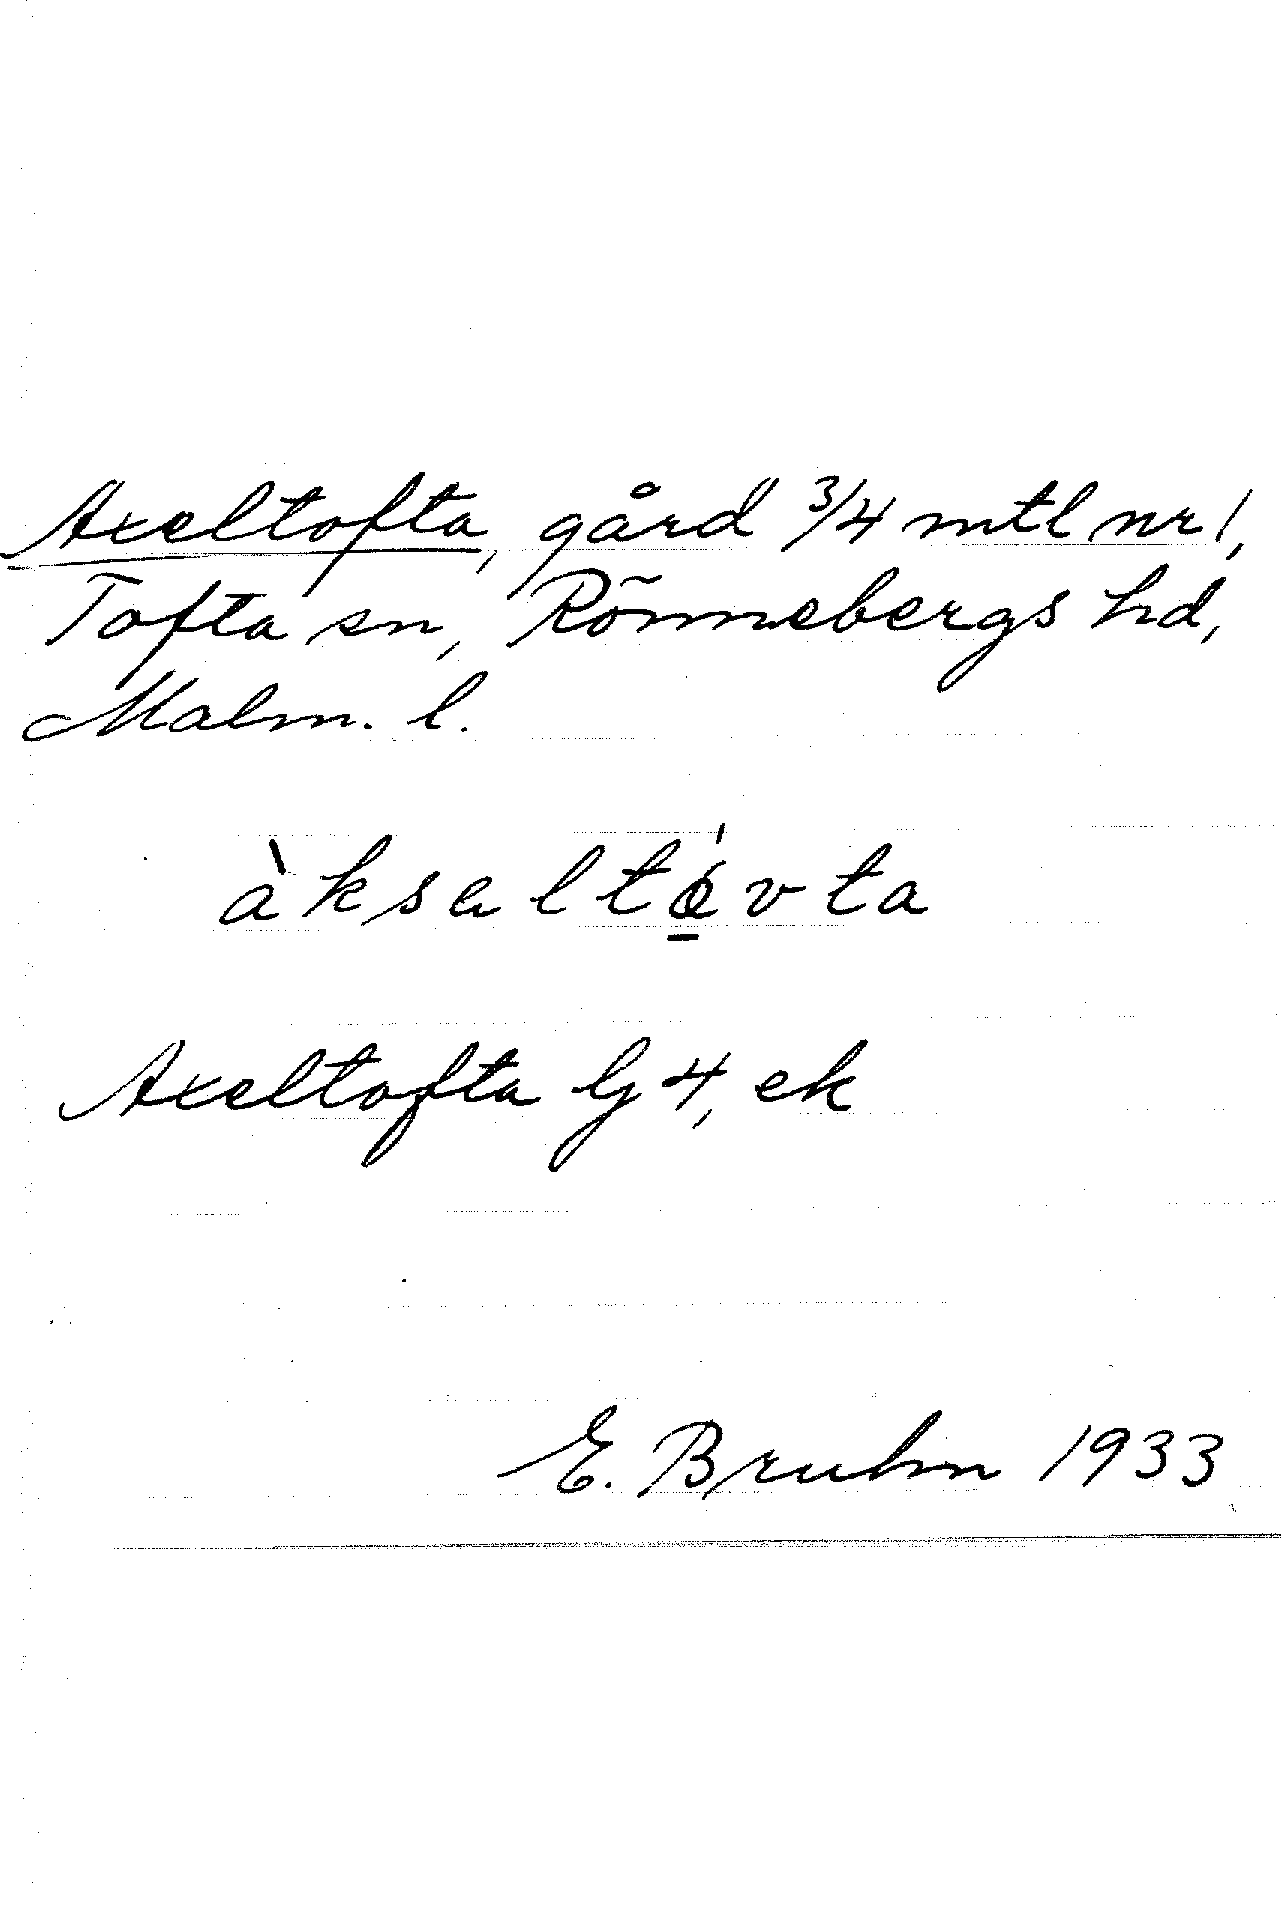 Axeltofta, gård 3/4 mtl nr 1,
Tofta sn, Rönnebergs hd,
Malm. l.
àksəltó̱vta
Axeltofta lg 4, ek
E. Bruhn 1933